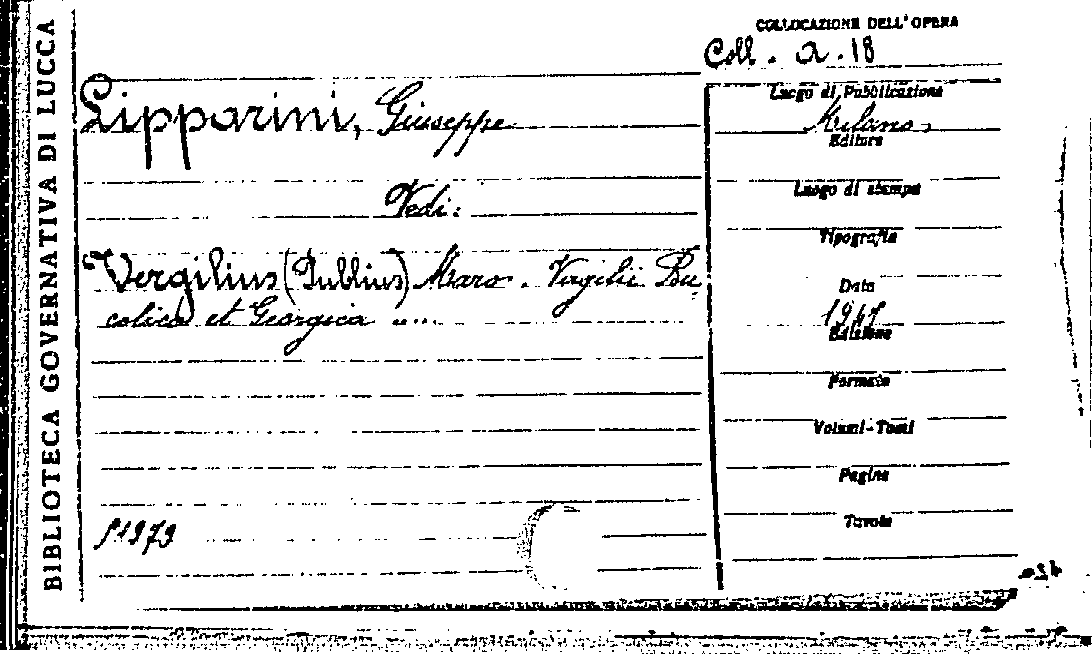 BIBLIOTECA GOVERNATIVA DI LUCCA
COLLOCAZIONE DELL'OPERA
Coll. a. 18
Lipparini, Giuseppe
Vedi:
Vergilius (Publius) Maro. Virgilii Bu
colica et Georgica .....
Luogo di Pubblicazione
Milano
Editore
Luogo di stampa
Tipografia
Data
Edizione
Formato
Volumi-Tomi
Pagine
Tavole